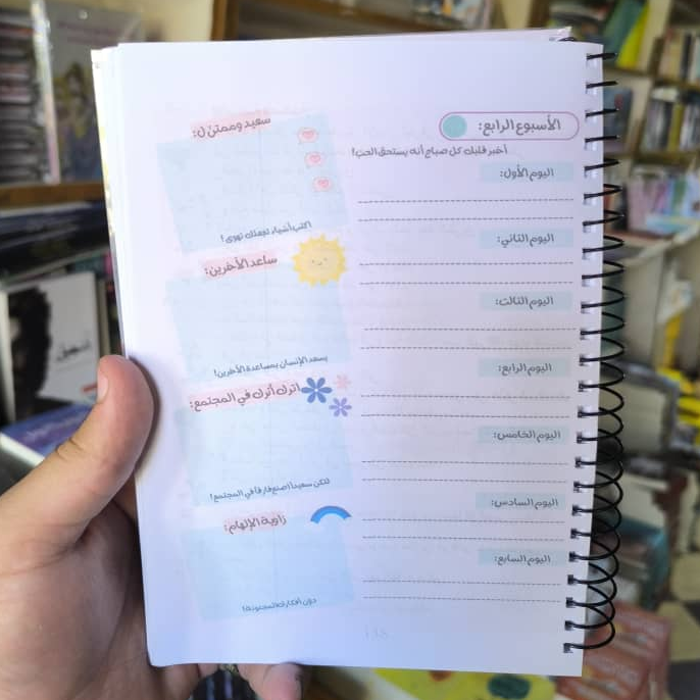 الأسبوع الرابع:
أخبر قلبك كل صباح أنه يستحق الحب!
اليوم الأول:
اليوم الثاني:
اليوم الثالث:
اليوم الرابع:
اليوم الخامس:
اليوم السادس:
اليوم السابع:
سعيد وممتن ل:
اكتب أشياء تجعلك تهوى!
ساعد الآخرين:
يسعد الإنسان بمساعدة الآخرين!
اترك أثرك في المجتمع:
لتكن سعيداً اصنع فارقاً في المجتمع!
زاوية الإلهام:
دون أفكارك المجنونة!